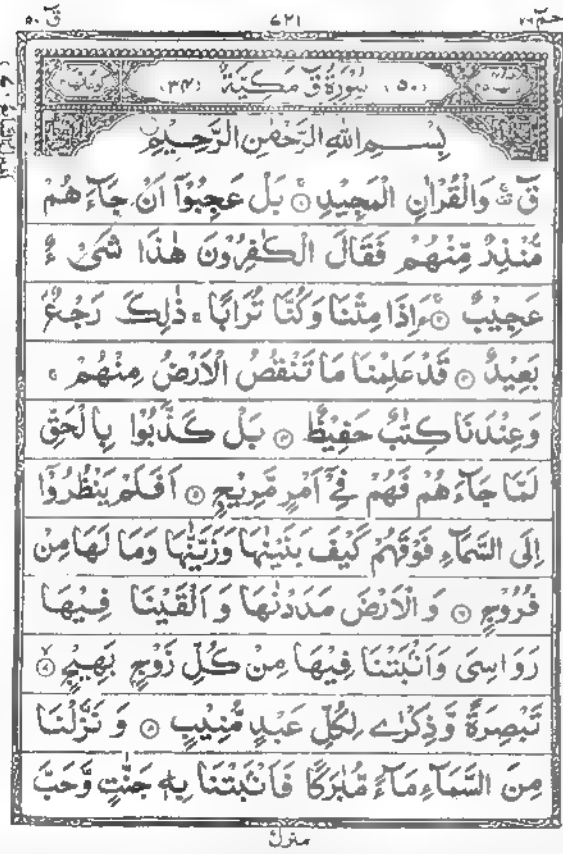 حٰمٓ ٢٦ ٦٢١ قٓ ٥٠
(٥٠) سُوْرَةُ قٓ مَكِّيَّةٌ (٣٤)
بِسْمِ اللّٰهِ الرَّحْمٰنِ الرَّحِيْمِ
قٓ ۚ وَالْقُرْاٰنِ الْمَجِيْدِ ۝١ بَلْ عَجِبُوْٓا اَنْ جَآءَهُمْ
مُّنْذِرٌ مِّنْهُمْ فَقَالَ الْكٰفِرُوْنَ هٰذَا شَيْءٌ
عَجِيْبٌ ۝٢ ءَاِذَا مِتْنَا وَكُنَّا تُرَابًا ۚ ذٰلِكَ رَجْعٌۢ
بَعِيْدٌ ۝٣ قَدْ عَلِمْنَا مَا تَنْقُصُ الْاَرْضُ مِنْهُمْ ۚ
وَعِنْدَنَا كِتٰبٌ حَفِيْظٌ ۝٤ بَلْ كَذَّبُوْا بِالْحَقِّ
لَمَّا جَآءَهُمْ فَهُمْ فِيْٓ اَمْرٍ مَّرِيْجٍ ۝٥ اَفَلَمْ يَنْظُرُوْٓا
اِلَى السَّمَآءِ فَوْقَهُمْ كَيْفَ بَنَيْنٰهَا وَزَيَّنّٰهَا وَمَا لَهَا مِنْ
فُرُوْجٍ ۝٦ وَالْاَرْضَ مَدَدْنٰهَا وَاَلْقَيْنَا فِيْهَا
رَوَاسِيَ وَاَنْۢبَتْنَا فِيْهَا مِنْ كُلِّ زَوْجٍۭ بَهِيْجٍ ۝٧
تَبْصِرَةً وَّذِكْرٰى لِكُلِّ عَبْدٍ مُّنِيْبٍ ۝٨ وَنَزَّلْنَا
مِنَ السَّمَآءِ مَآءً مُّبٰرَكًا فَاَنْۢبَتْنَا بِهٖ جَنّٰتٍ وَّحَبَّ
منزل